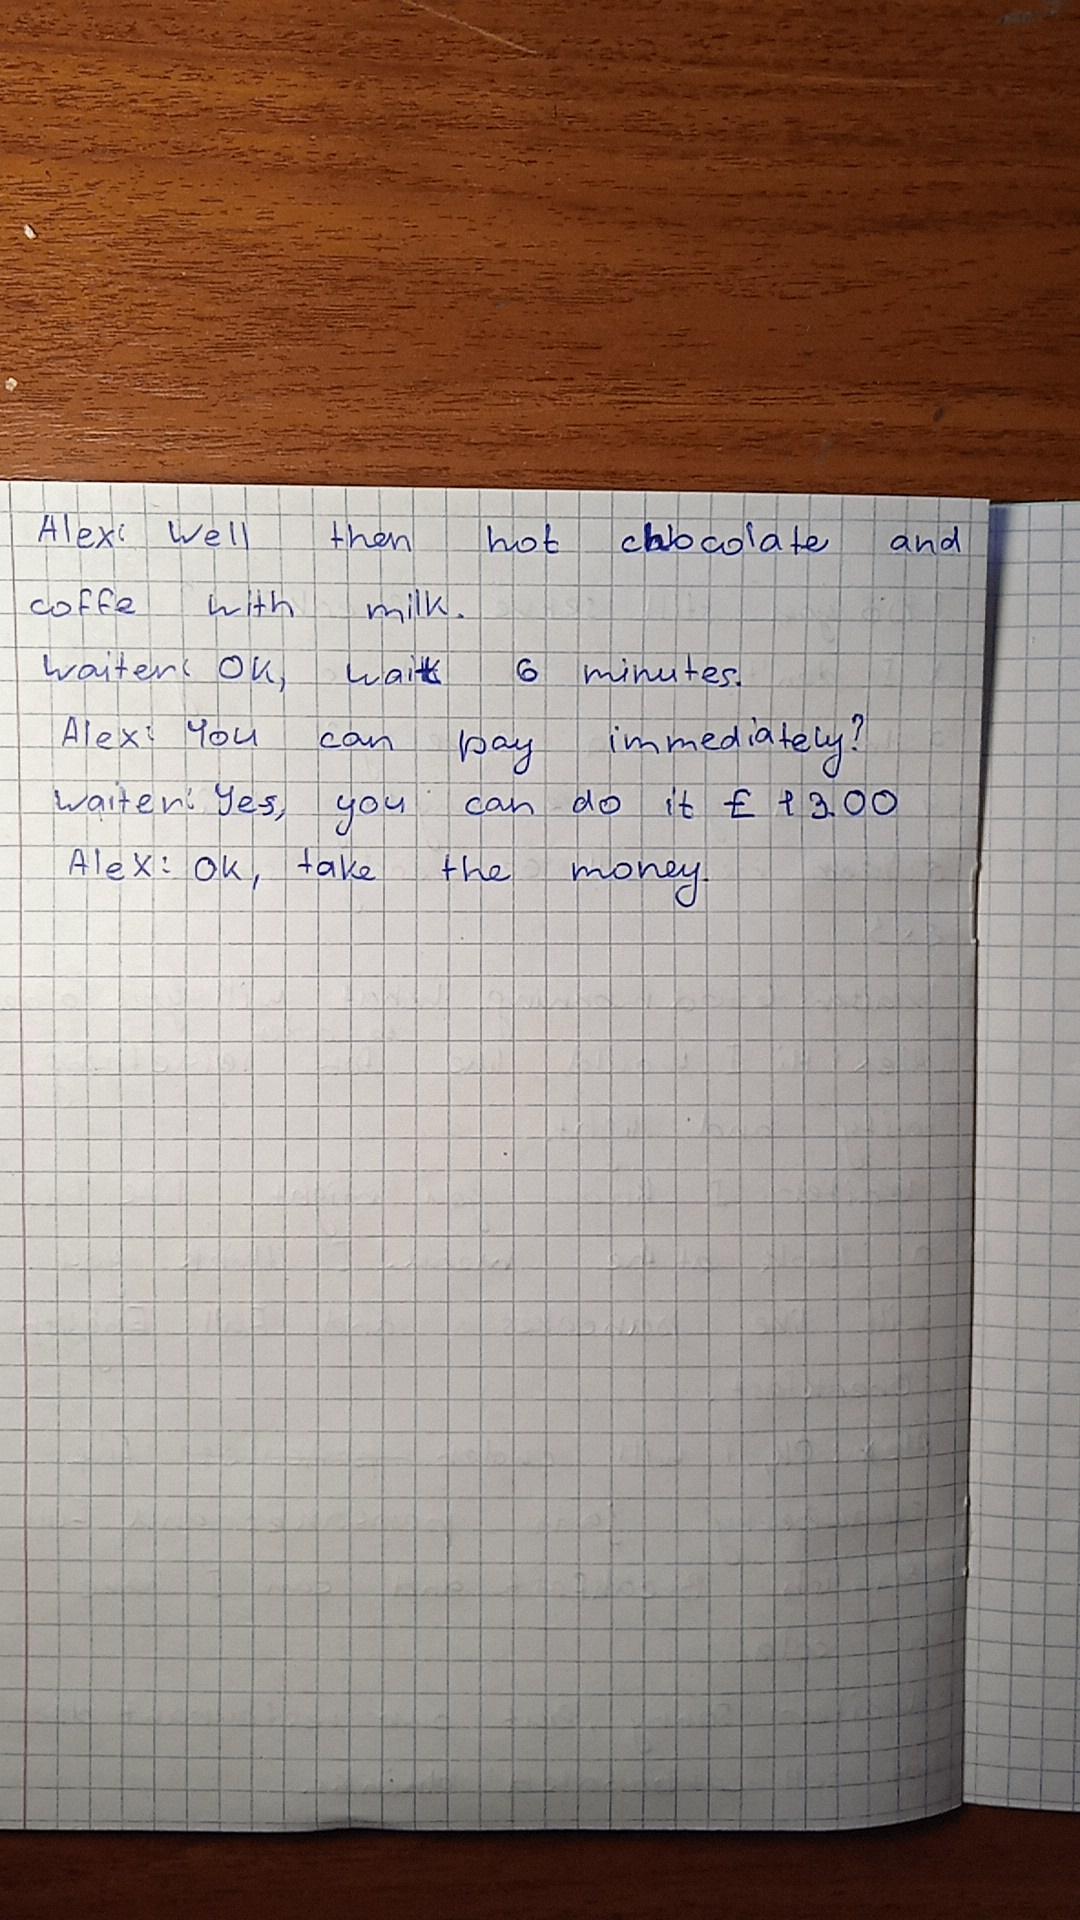 Alex: Well then hot chocolate and
coffe with milk.
Waiter: OK, wait 6 minutes.
Alex: You can pay immediately?
Waiter: Yes, you can do it £ 13.00
Alex: Ok, take the money.